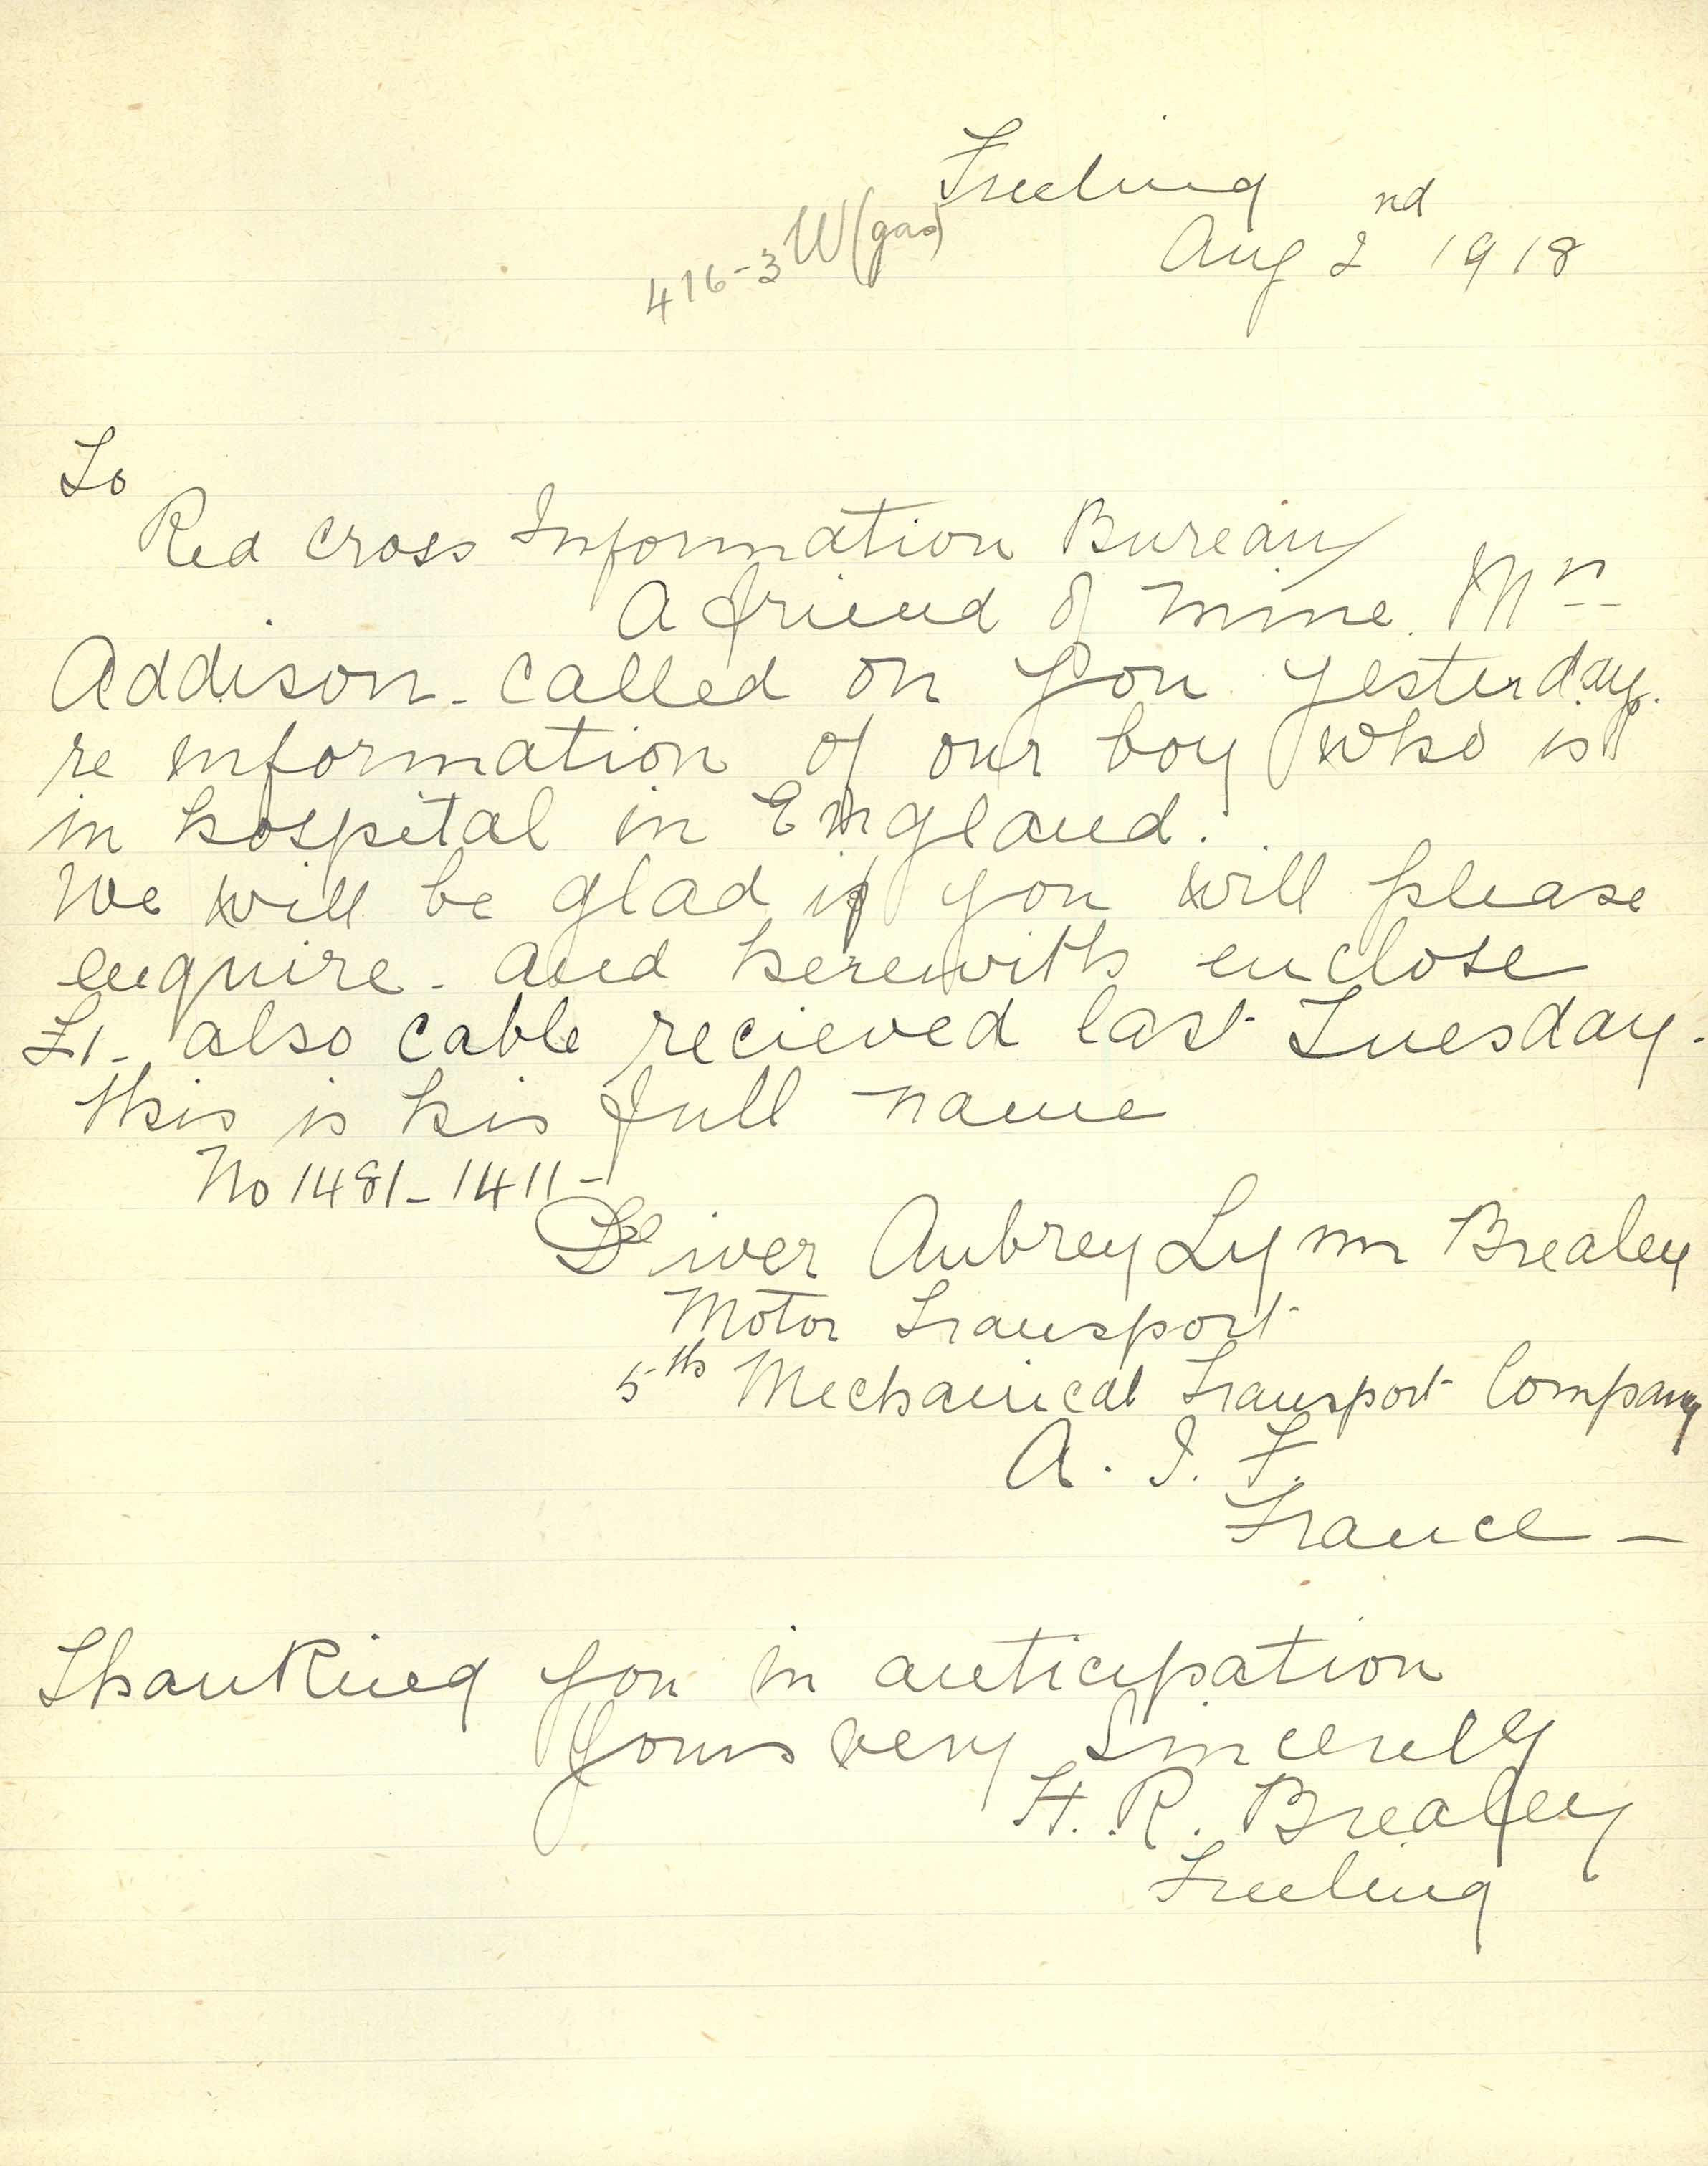 Freeling
416-3 W(gas)
Aug 2nd 1918
To
Red Cross Information Bureau
A friend of mine Mr
Addison - called on you yesterday.
re information of our boy who is
in hospital in England.
We will be glad if you will please
enquire - and herewith enclose
£1 - also cable recieved last Tuesday.
this is his full name
No 1481 - 1411 -
Driver Aubrey Lynn Brealey
Motor Transport
5th Mechanical Transport Company
A. I. F.
France -
Thanking you in anticipation
Yours very Sincerely
H. R. Brealey
Freeling